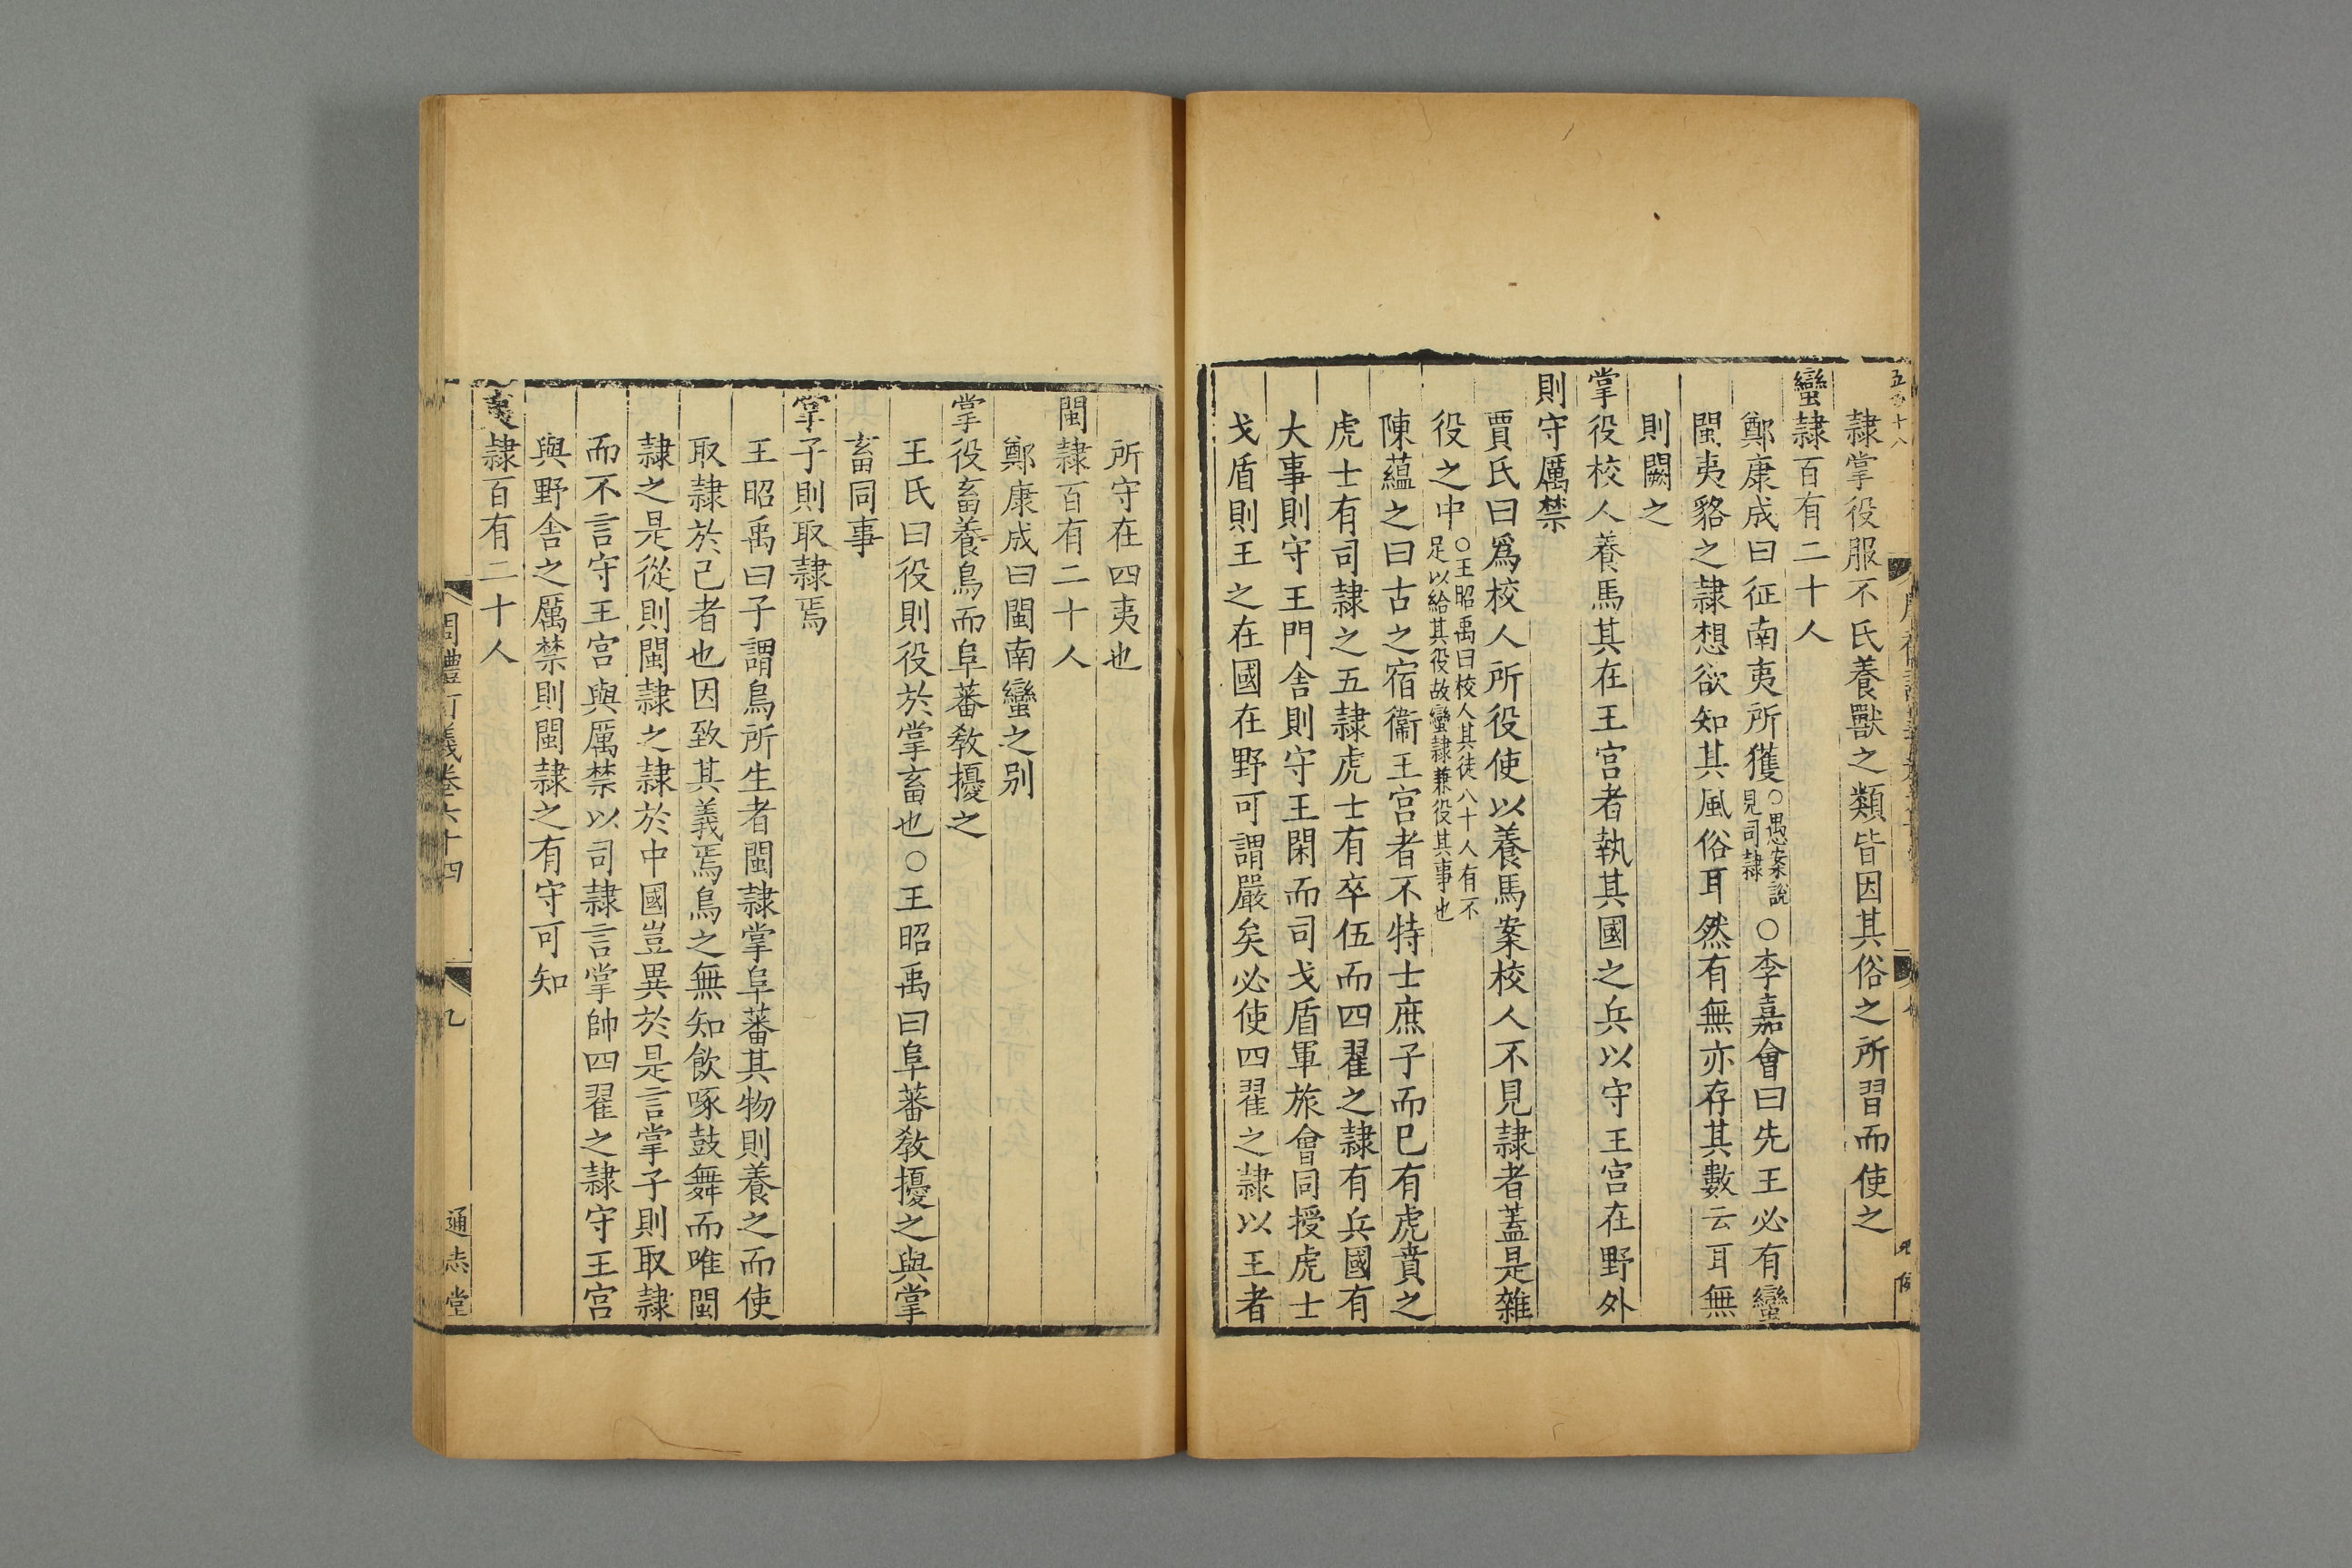 隷掌役服不氏養獸之類皆因其俗之所習而使之
蠻隷百有二十人
鄭康成曰征南夷所獲○愚案說見司隷○李嘉會曰先王必有蠻
閩夷貉之隷想欲知其風俗耳然有無亦存其數云耳無
則闕之
掌役校人養馬其在王宫者執其國之兵以守王宫在野外
則守厲禁
賈氏曰爲校人所役使以養馬案校人不見隷者蓋是雜
役之中○王昭禹曰校人其徒八十人有不足以給其役故蠻隷兼役其事也
陳蘊之曰古之宿衞王宫者不特士庶子而巳有虎賁之
虎士有司隷之五隷虎士有卒伍而四翟之隷有兵國有
大事則守王門舍則守王閑而司戈盾軍旅會同授虎士
戈盾則王之在國在野可謂嚴矣必使四翟之隷以王者
所守在四夷也
閩隷百有二十人
鄭康成曰閩南蠻之别
掌役畜養鳥而阜蕃敎擾之
王氏曰役則役於掌畜也○王昭禹曰阜蕃敎擾之與掌
畜同事
掌子則取隷焉
王昭禹曰子謂鳥所生者閩隷掌阜蕃其物則養之而使
取隷於己者也因致其義焉鳥之無知飲啄鼓舞而唯閩
隷之是從則閩隷之隷於中國豈異於是言掌子則取隷
而不言守王宫與厲禁以司隷言掌帥四翟之隷守王宫
與野舍之厲禁則閩隷之有守可知
夷隷百有二十人
周禮訂義卷六十四
九
通志堂